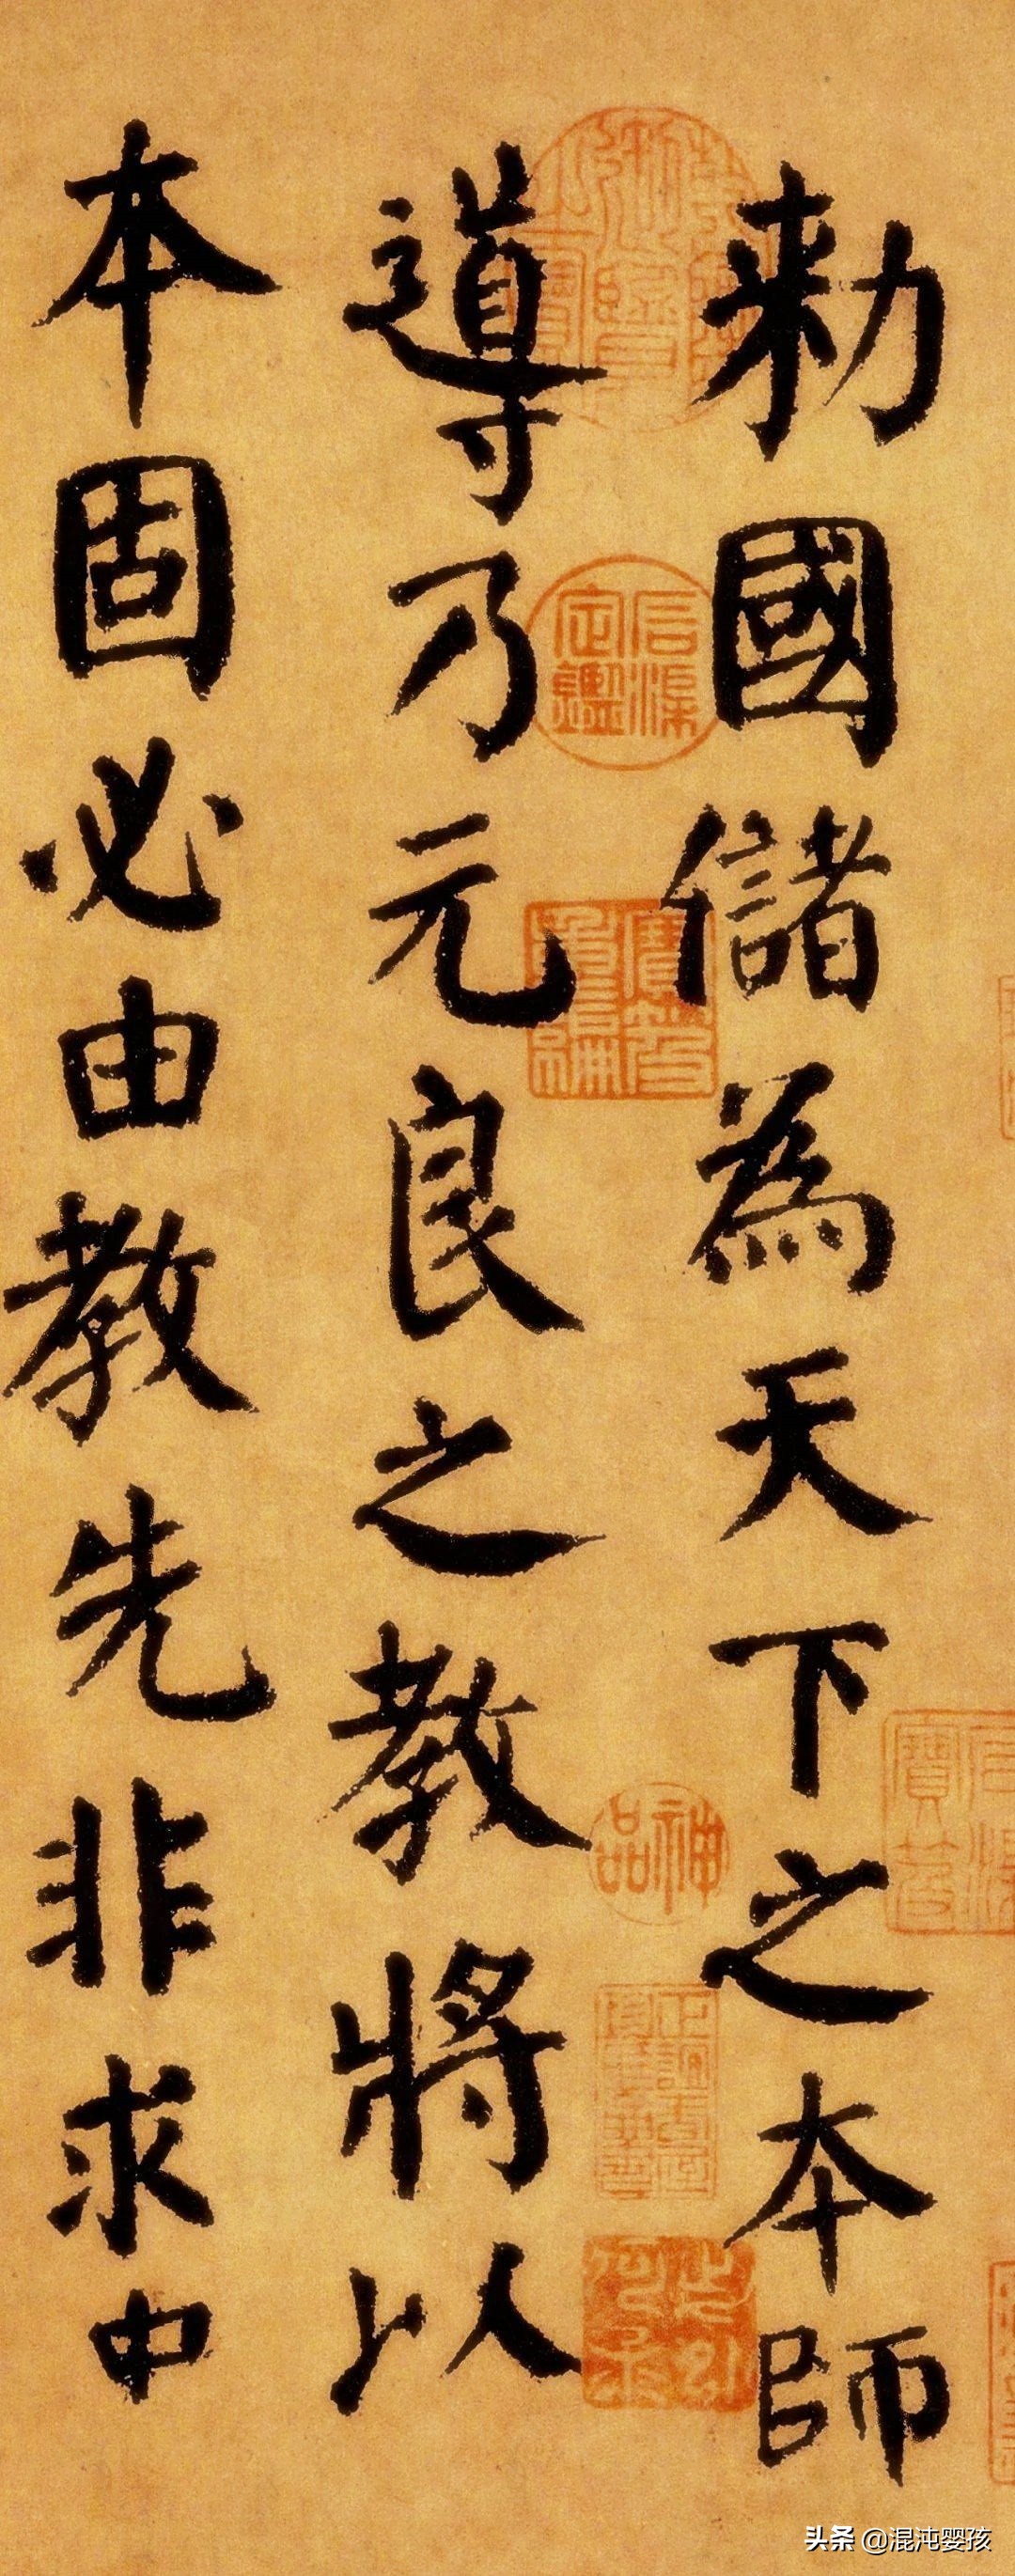 勅國儲為天下之本師
導乃元良之教將以
本固必由教先非求中
神品
头条 @混沌婴孩